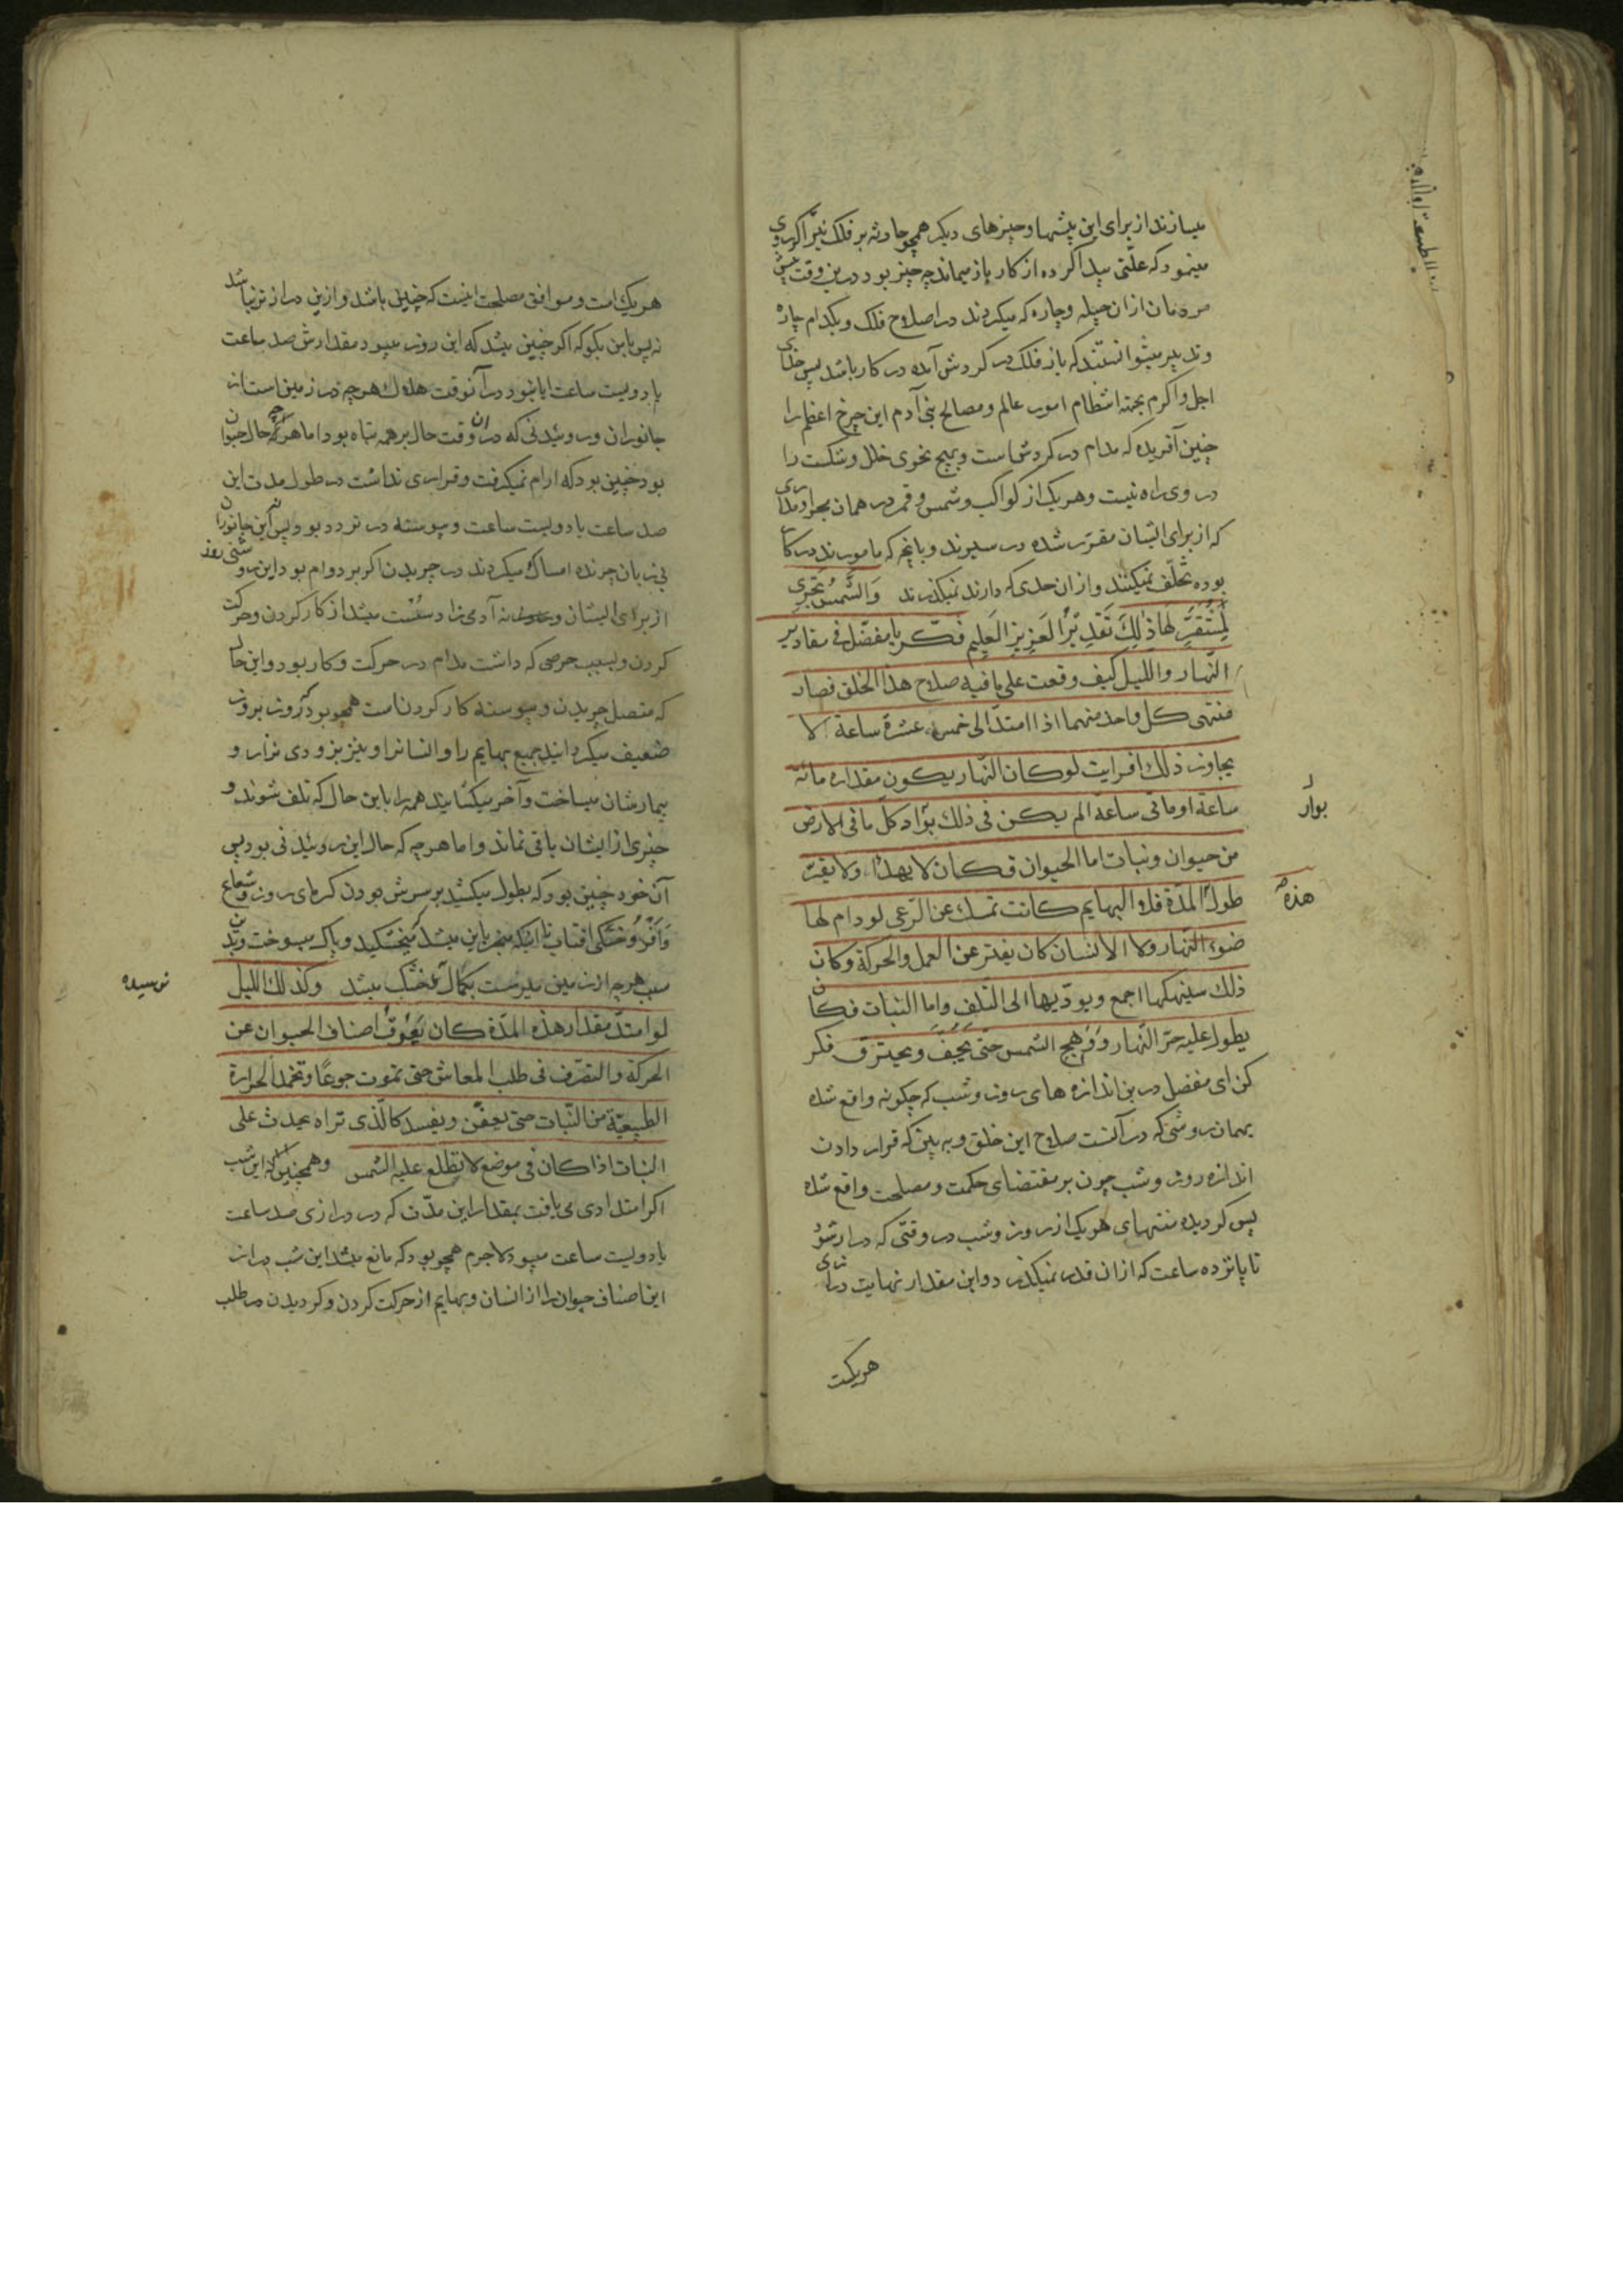 میسازند از برای این پیشها و چیزهای دیگر همچو حادثه بر فلک نیز اگر روی
مینمود که علتی پیدا کرده از کار باز میماند چه چیز بود درین وقت پیش
مردمان از ان حیله و چاره که میکردند در اصلاح فلک و بکدام چاره
و تدبیر میتوانستند که باز فلک در کردش آمده در کار باشد پس خدای
اجل و اکرم بجهته انتظام امور عالم و مصالح بنی آدم این چرخ اعظم را
چنین آفریده که مدام در کردش است و بهیچ نحوی خلل و شکست را
در وی راه نیست و هر یک از کواکب و شمس و قمر در همان مجرا و مداری
که از برای ایشان مقرر شده در سیرند و بانچه که مامورند در کار
بوده تخلّف نمیکنند و از ان حدی که دارند نمیکذرند وَالشَّمْسُ تَجْرِی
لِمُسْتَقَرٍّ لَهَا ذٰلِكَ تَقْدِیْرُ الْعَزِیزِ الْعَلِیمِ فکّر یا مفضّل فی مقادیر
النّهار واللیل کیف وقعت علی مافیه صلاح هذا الخلق فصار
منتهی کل واحد منهما اذا امتدّ الی خمس عشرة ساعة لا
یجاوز ذلك افرایت لو کان النّهار یکون مقداره مائة
ساعة او مائتی ساعة الم یکن فی ذلك بوار کل ما فی الارض
بوار
من حیوان و نبات اما الحیوان فکان لا یهدأ ولا یقرّ
طول المدّة فلا البهایم کانت تمسك عن الرّعی لو دام لها
هذه
ضوء النّهار ولا الانسان کان یفتر عن العمل والحرکة وکان
ذلك سینهکها اجمع ویودّیها الی التلف واما النبات فکان
یطول علیه حرّ النّهار وَوَهج الشمس حتی یَجِفَّ ویحترق فکر
کن ای مفضل درین اندازه های روز و شب که چکونه واقع شده
بهمان روشی که در آنست صلاح این خلق و به بین که قرار دادن
اندازه روز و شب چون بر مقتضای حکمت و مصلحت واقع شده
پس کردیده منتهای هر یک از روز و شب در وقتی که دراز شود
تا پانزده ساعت که از ان قدر نمیکذرد و این مقدار نهایت درازی
هریکست
هر یک است و موافق مصلحت اینست که چنین باشد و ازین دراز تر نباشد
نه پس باین بکو که اکر چنین میشد که این روز میبود مقدارش صد ساعت
یا دویست ساعت ایا نبود در آنوقت هلاك هر چه در زمین است از
جانوران و روئیدنی که در ان وقت حال بر همه تباه بود اما هر چه که حال حیوان
بود چنین بود که ارام نمیکرفت و قراری نداشت در طول مدت این
صد ساعت یا دویست ساعت و پیوسته در تردد بود پس نه این جانوران
بی زبان چرنده امساك میکردند در چریدن اکر بر دوام بود این روشنی روز
از برای ایشان و نه آدمی زاد سُست میشد از کار کردن و حرکت
کردن و بسبب حرصی که داشت مدام در حرکت و کار بود و این حال
که متصل چریدن و پیوسته کار کردن است همچو بود که روز بروز
ضعیف میکردانید جمیع بهایم را و انسانرا و نیز بزودی نزار و
بیمارشان میساخت و آخر میکشانید همه را باین حال که تلف شوند و
چیزی از ایشان باقی نماند و اما هر چه که حال این روئیدنی بود پس
آن خود چنین بود که بطول میکشید بر سرش بودن کرمای روز و شعاع
وَاَفْرُوخْتَکی افتاب تا اینکه منجر باین میشد که میخشکید و پاك میسوخت و بدین
سبب هر چه از زمین میرست بکمال نرسیده خشك میشد وکذلك اللیل
نرسیده
لو امتدّ مقدار هذه المدّة کان یَعُوقُ اصناف الحیوان عن
الحرکة والتصرّف فی طلب المعاش حتی تموت جوعًا و تخمد الحرارة
الطبیعیّة من النّبات حتی یعفّن ویفسد کالّذی تراه یحدث علی
النبات اذا کان فی موضع لا تطلع علیه الشمس و همچنین که این شب
اکر امتدادی می یافت بمقدار این مدّت که در درازی صد ساعت
یا دویست ساعت میبود لاجرم همچو بود که مانع میشد این شب دراز
این اصناف حیوان را از انسان و بهایم از حرکت کردن و کردیدن در طلب